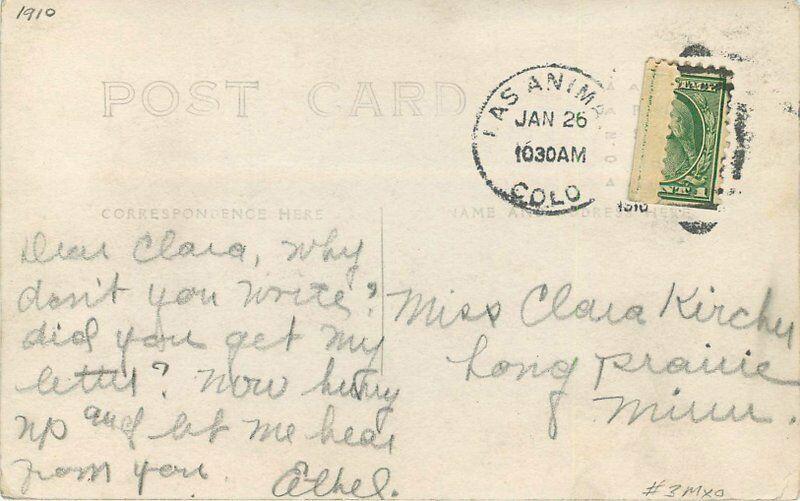 1910
POST CARD
LAS ANIMA
JAN 26
1030AM
COLO
1910
CORRESPONDENCE HERE
NAME AND ADDRESS HERE
Dear Clara, Why
don't you write?
did you get my
letter? Now hurry
up and let me hear
from you.
Ethel.
Miss Clara Kircher
Long Prairie
Minn.
#3MX0